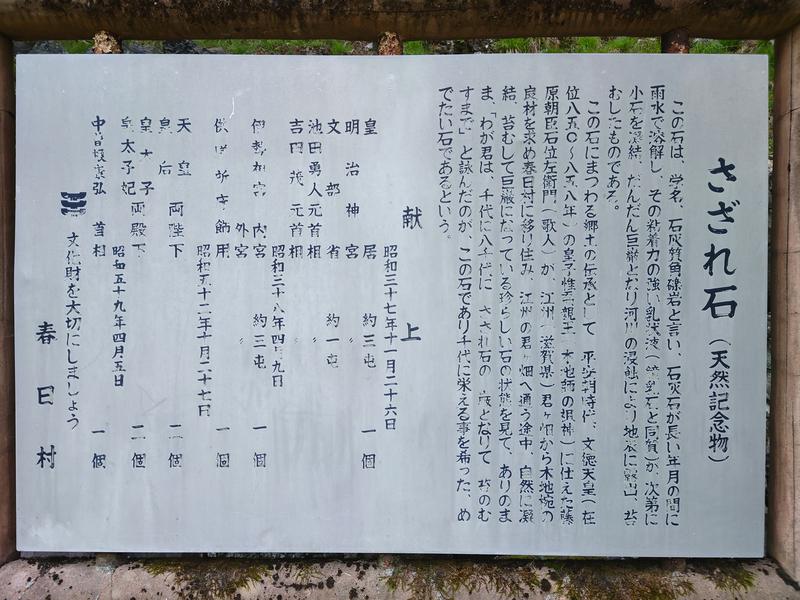 さざれ石(天然記念物)
この石は、学名、石灰質角礫岩と言い、石灰石が長い年月の間に
雨水で溶解し、その粘着力の強い乳状液(鍾乳石と同質)が、次第に
小石を凝結、だんだん巨巌となり河川の浸蝕により地表に露出、苔
むしたものである。
この石にまつわる郷土の伝承として、平安朝時代、文徳天皇(在
位八五〇〜八五八年)の皇子惟喬親王(木地師の祖神)に仕えた藤
原朝臣石位左衛門(歌人)が、江州(滋賀県)君ヶ畑から木地椀の
良材を求め春日村に移り住み、江州の君ヶ畑へ通う途中、自然に凝
結、苔むして巨巌になっている珍らしい石の状態を見て、ありのま
ま、「わが君は、千代に八千代に、さざれ石の、巌となりて、苔のむ
すまで」と詠んだのが、この石であり千代に栄える事を希った、め
でたい石であるという。
献上
昭和三十七年十一月二十六日
皇居 約三屯 一個
明治神宮 〃
文部省 約一屯
池田勇人元首相 〃
吉田茂元首相
昭和三十八年四月九日
伊勢神宮 内宮 約三屯 一個
外宮 〃
昭和五十二年十月二十七日
一個
天皇 皇后 両陛下 二個
皇太子 皇太子妃 両殿下 二個
昭和五十九年四月五日
中曽根康弘 首相 一個
文化財を大切にしましょう
春日村